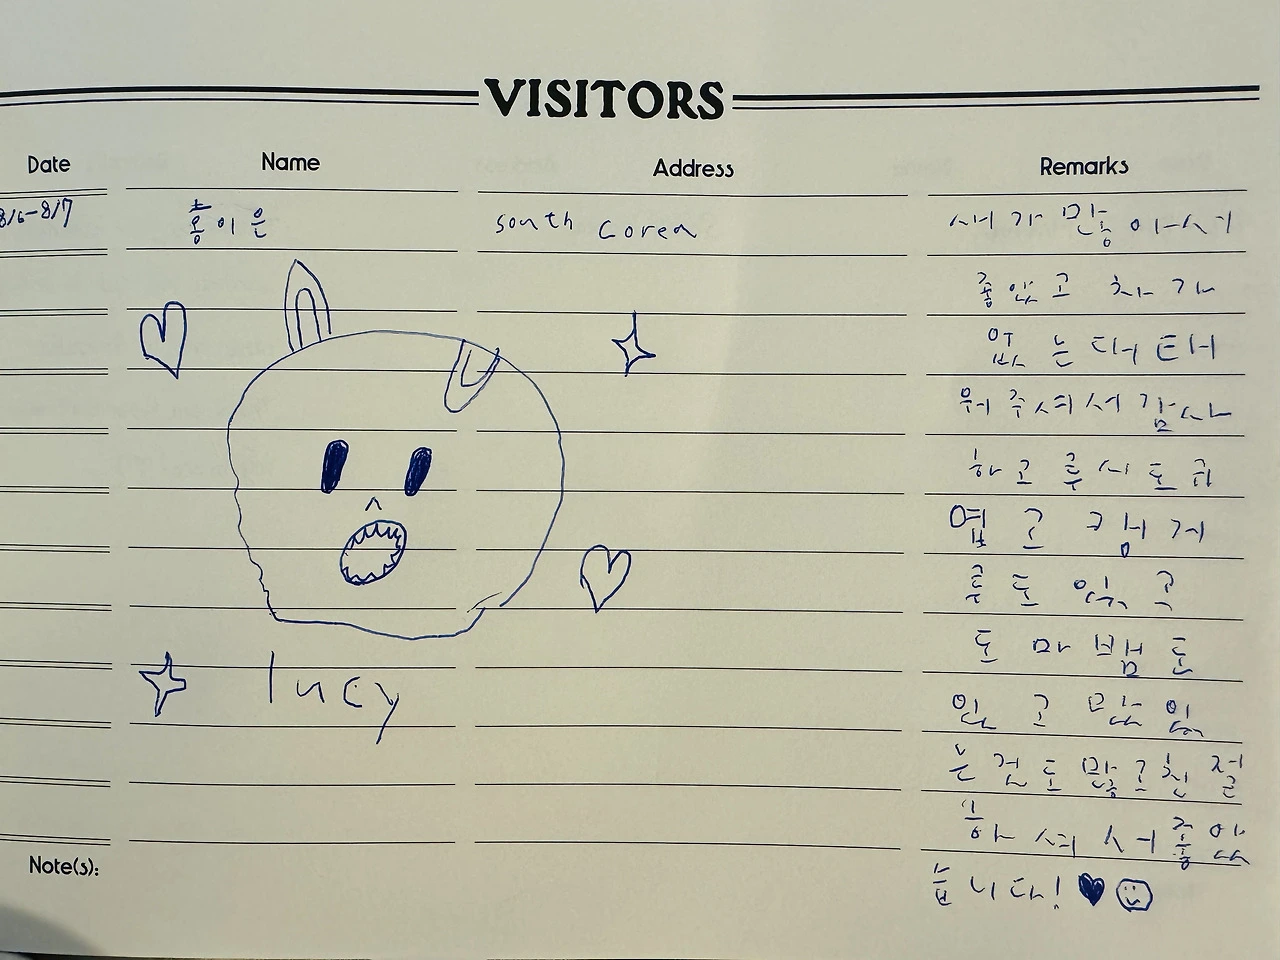 VISITORS
Date Name Address Remarks
8/6-8/7 홍이은 south corea 새가 많아서
좋았고 차가
없는데 태
워주셔서 감사
하고 루시도 귀
엽고 캥거
루도 있고
도마뱀도
lucy
있고 맛있
는 것도 많고 친절
하셔서 좋았
Note(s):
습니다!